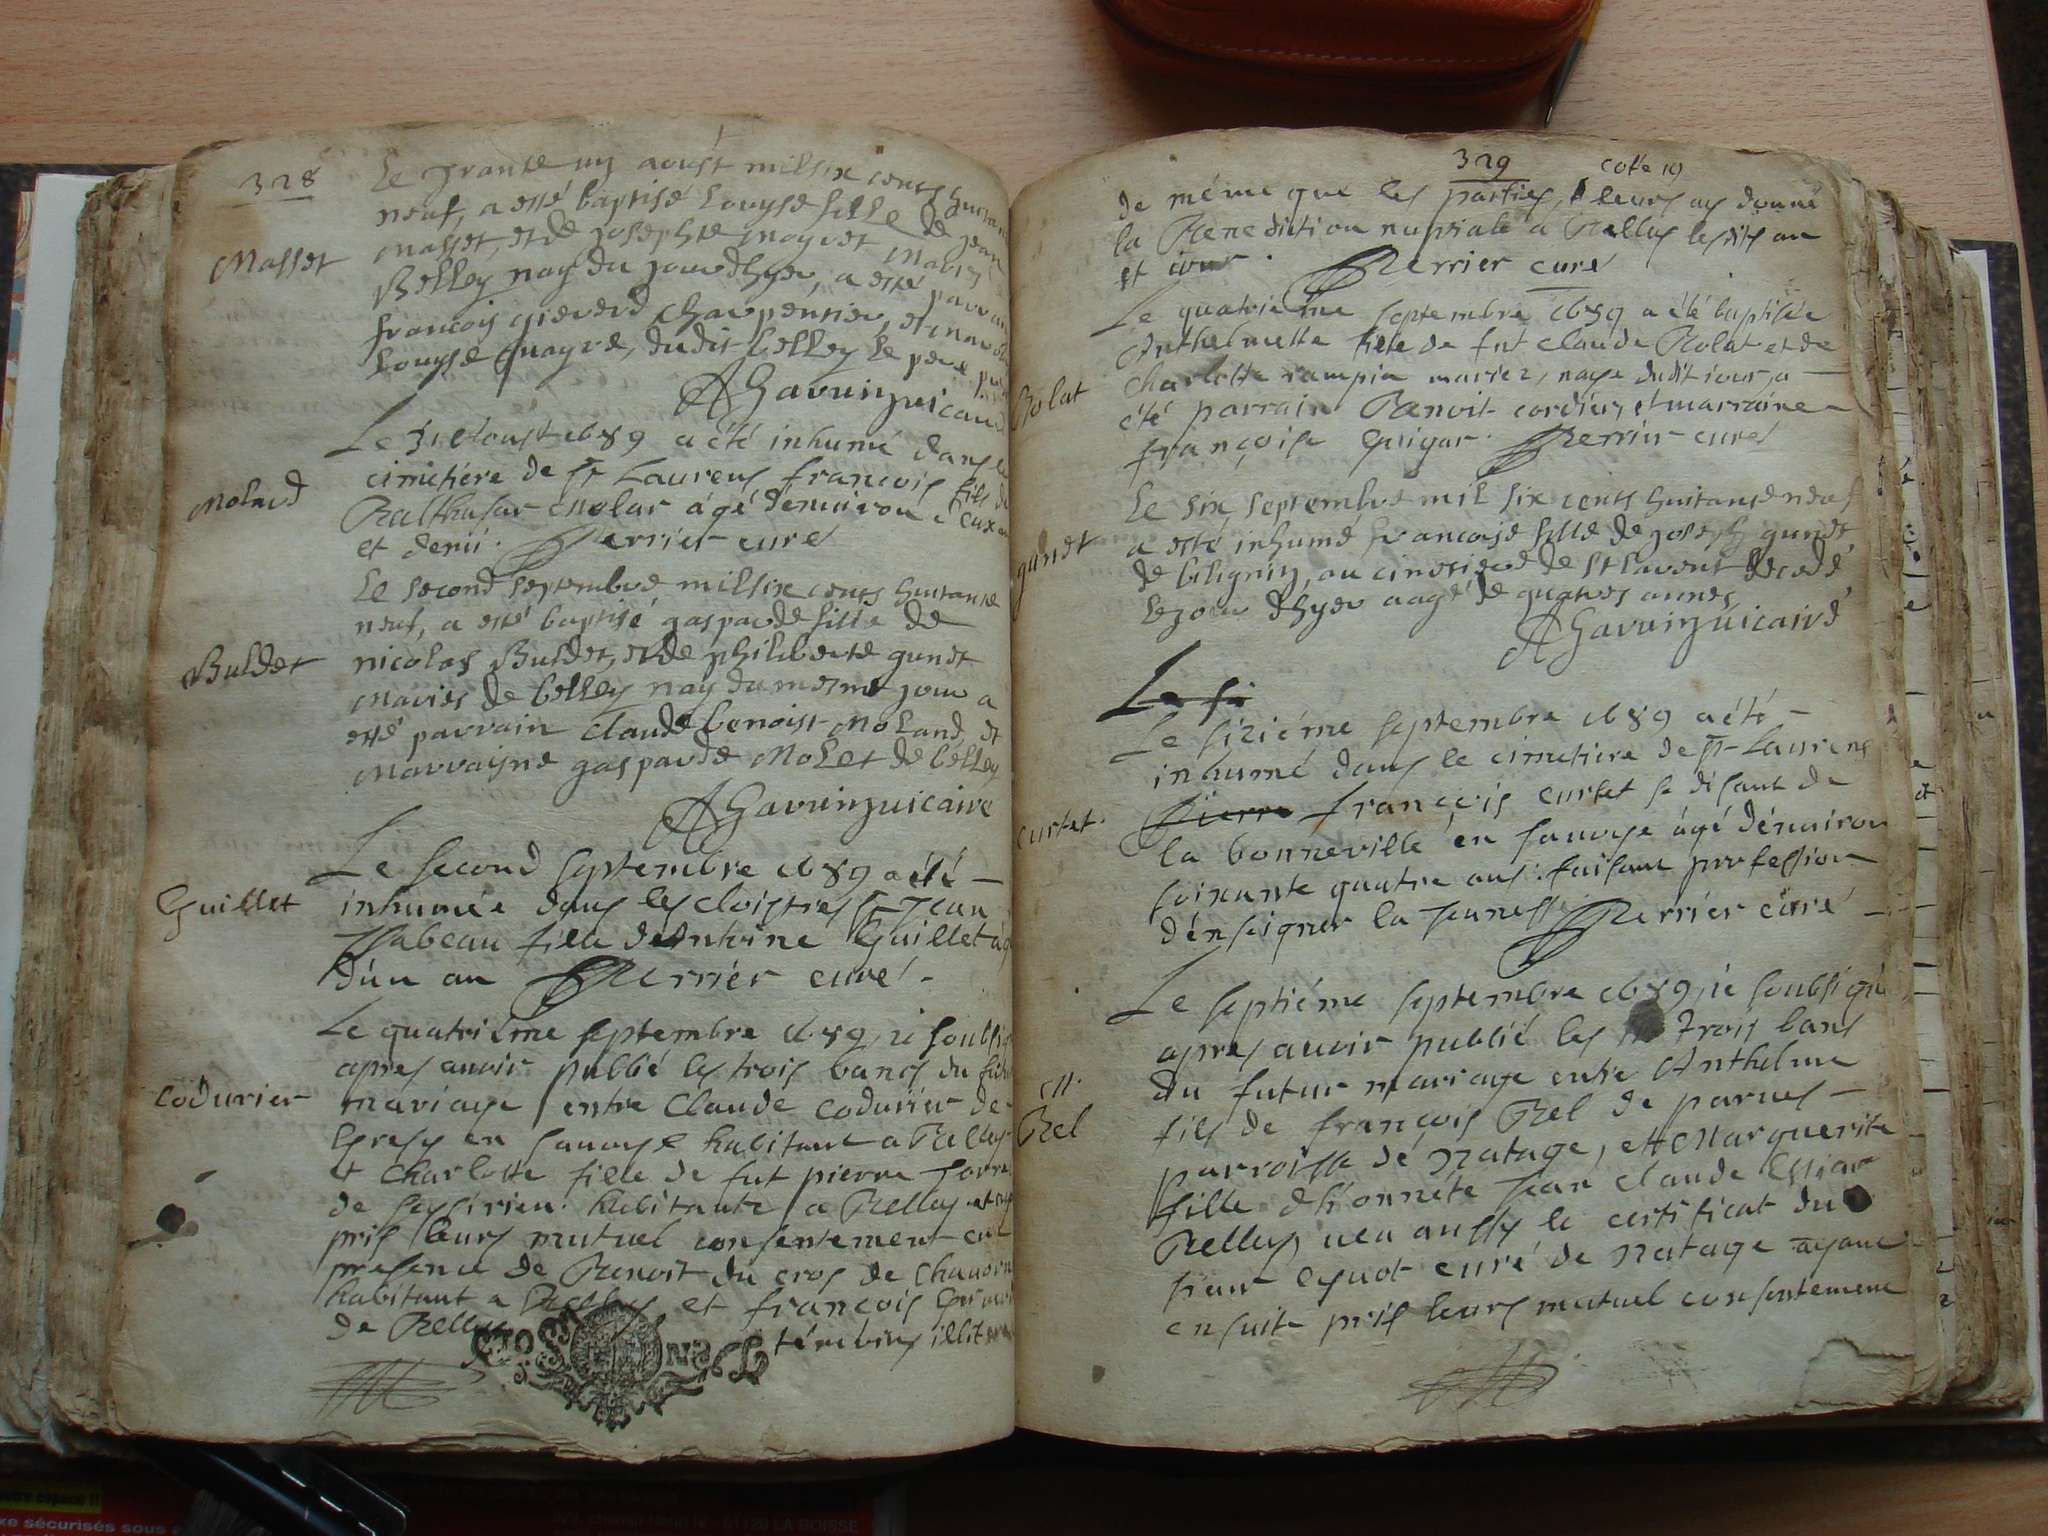 328
Le trante un aoust mil six cents huitante
neuf, a esté baptisé Louyse fille de Jean
Masset
Masset, et de Josephte mayret Mariés
Belley nay du jourdhyer, a esté parrain
francois gieverd charpentier, et marraine
Louyse mayre, dudit belley le pere
AGavuin vicaire
Le 31 Aoust 1689 a été inhumé dans le
cimetiére de St Laurens francois fils de
Molard
Balthasar Molar âgé denuiron deux ans
et demi. Perrier curé
Le second septembre mil six cents huitante
neuf, a esté baptisé gasparde fille de
Buldet
nicolas Buldet, et de philiberte gunet
Mariés de belley nay du mesme jour a
esté parrain claude benoist Moland, et
Marrayne gasparde Molet de belley
AGavuin vicaire
Le second septembre 1689 a été —
Guillet
inhumée dans les cloistres St Jean
Isabeau fille de Antoine Guillet âgée
d'un an Perrier curé -
Le quatriéme septembre 1689 je soubsigné
apres auoir publié les trois bancs du futur
Codurier
mariage entre Claude Codurier de
Gresy en sauoye habitant a Belley
et Charlotte fille de fut pierre
de habitante a Belley et
pris leurs mutuel consentement en
presence de Benoit du cros de
habitant a Belley et francois
de Belley témoins illit
329 cotte 19
de même que les parties, leurs ay donné
la Benediction nupsiale a Belley lesdits an
et jour. Perrier curé
Le quatriéme septembre 1689 a été baptisée
Anthelmette fille de fut claude Rolat et de
Rolat
Charlotte rampin mariez, naye dudit jour, a —
été parrain Benoit cordier, et marraine -
françoise Guigar. Perrier curé
Le six septembre mil six cents huitante neuf
a esté inhumé francoise fille de joseph gunet
gunet
de billignin, au cimetiere de St Laurent décedé
le jour dhyer aagé de quatres annes
AGavuin vicaire
Le si
Le siziéme septembre 1689 a été —
inhumé dans le cimetiere de St Laurens
Curtet.
Pierre françois curtet se disant de
la bonneville en sauoye âgé d'énuiron
soixante quatre ans. faisant profession
d'énseigner la jeunesse Perrier curé —
Le septiéme septembre 1689, je soubsigné
apres auoir publié les trois bans
du futur mariage entre Anthelme
M.
Rel
fils de françois Rel de parues —
parroisse de Natage, et Marguerite
fille d'honnéte Jean claude
Belley, veu aussy le certificat du
sieur curé de Natage ayant
ensuite pris leurs mutuel consentement